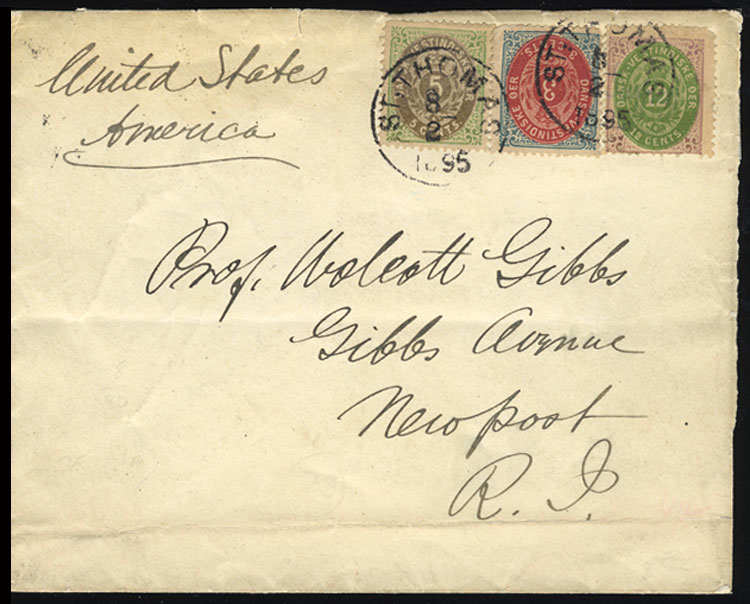 United States
America
5
CENTS
ST THOMAS
8
2
1895
3
DANSK VESTINDISKE DER
ST THOMAS
8
2
1895
DANSK VESTINDISKE DER
12
12 CENTS
Prof. Wolcott Gibbs
Gibbs Avenue
Newport
R. I.